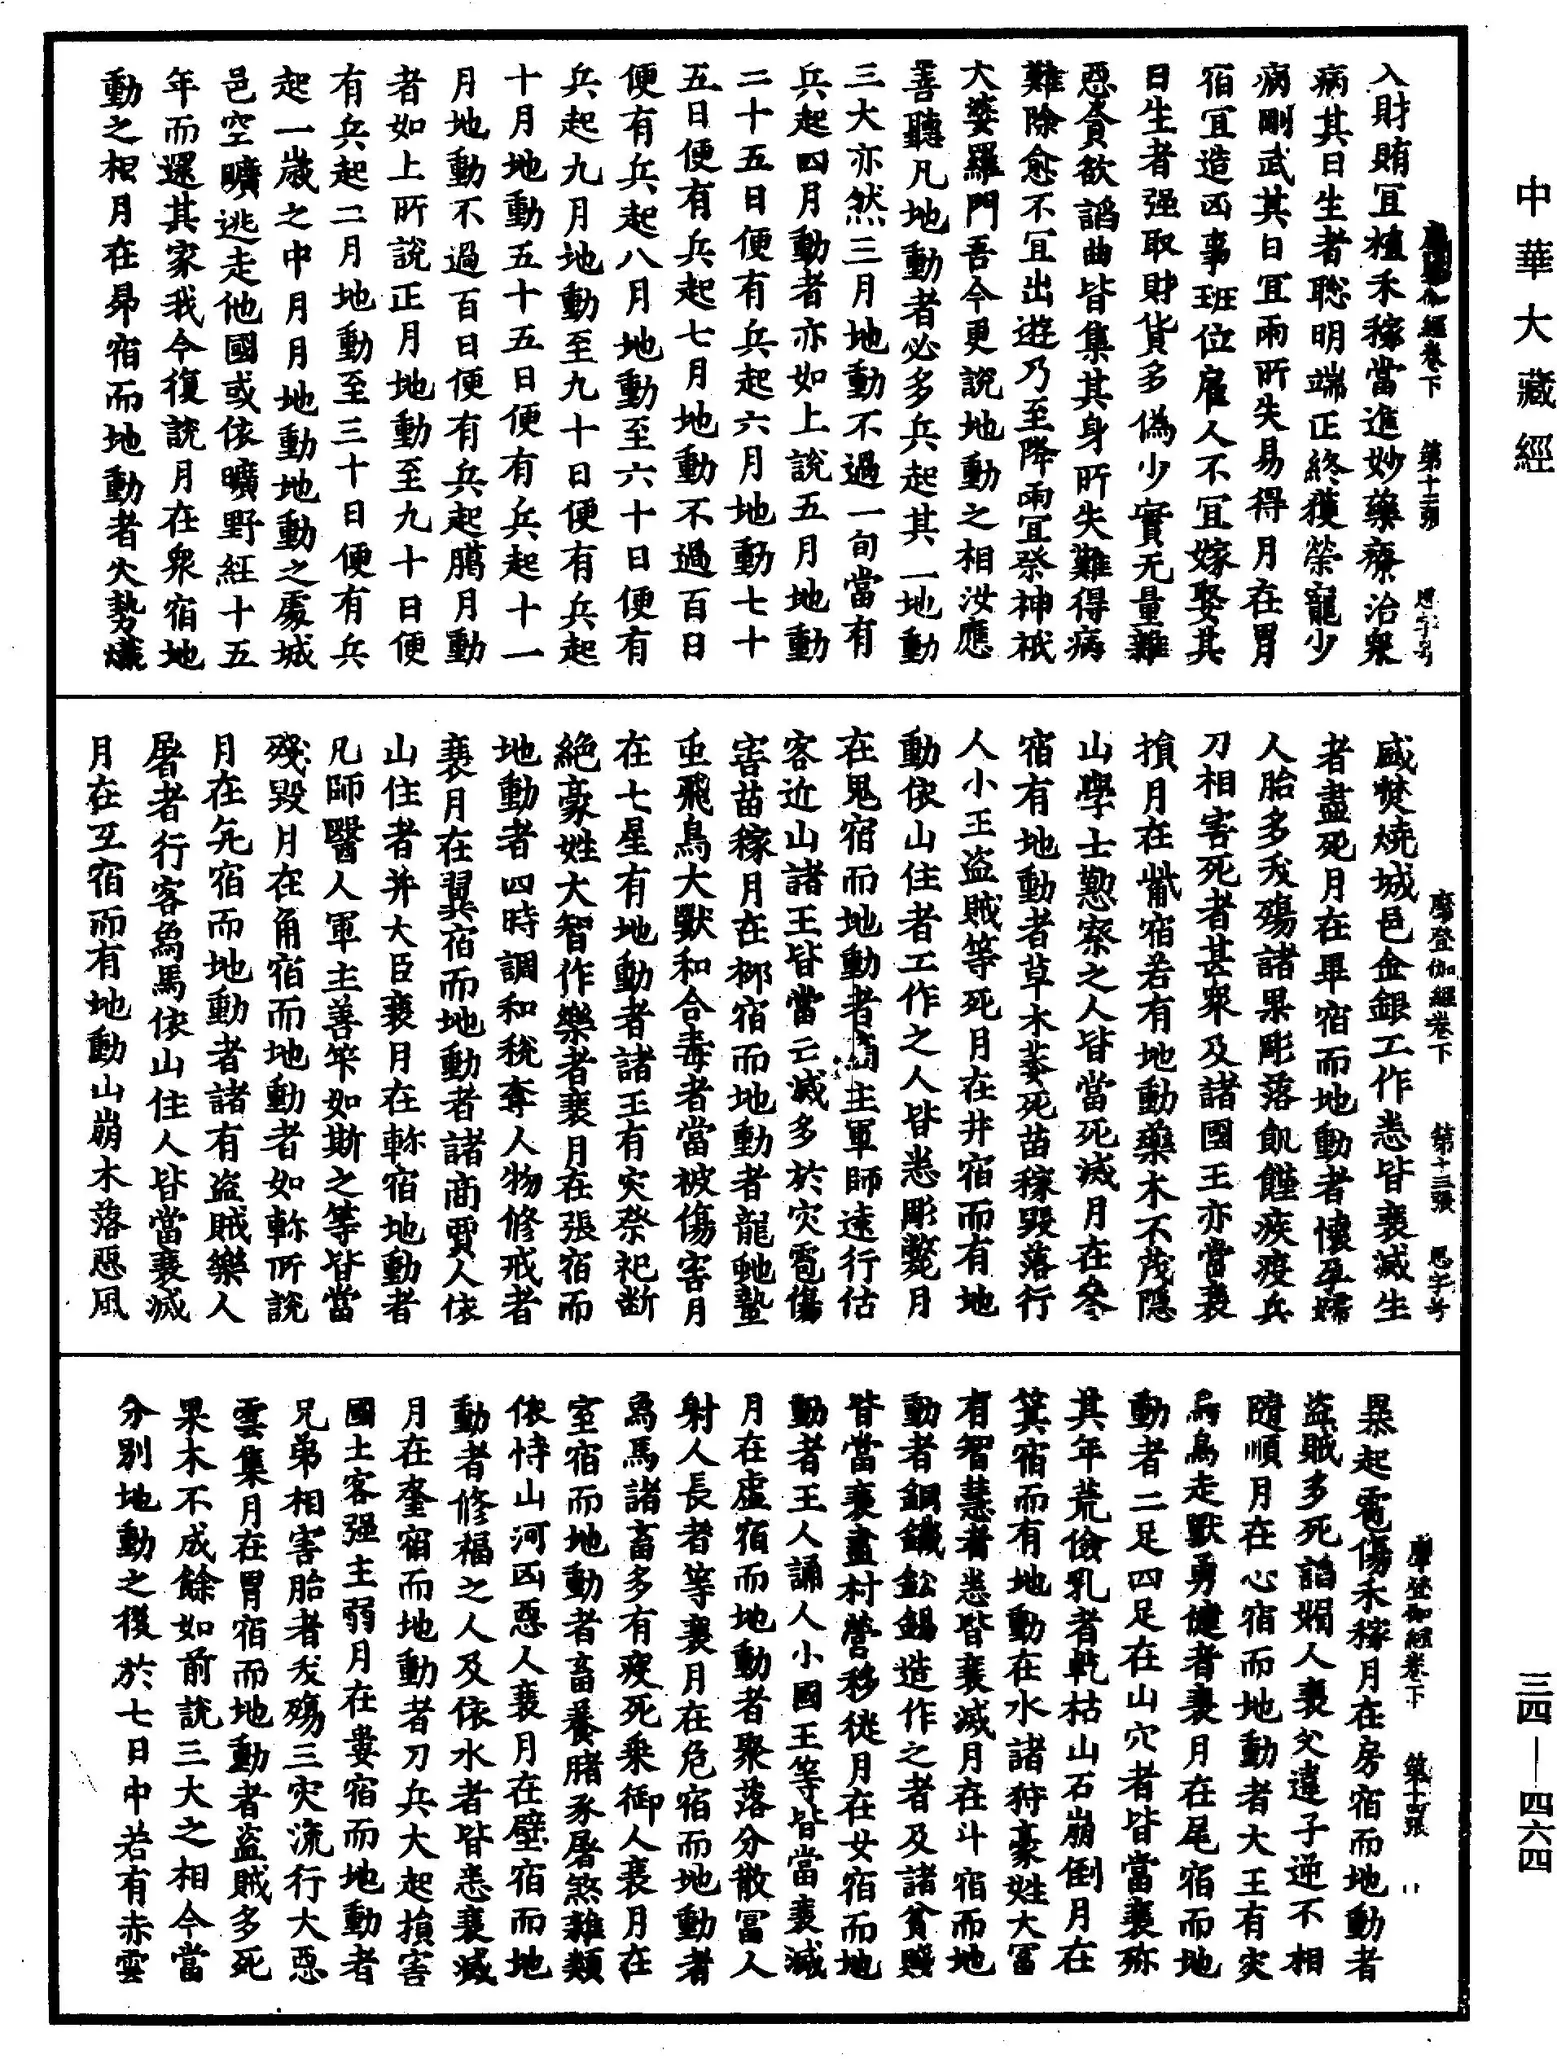 中華大藏經
三四—四六四
摩登伽經卷下 第十二張 思字号
入財賄宜植禾稼當進妙藥療治衆
病其日生者聡明端正終獲榮寵少
病剛武其日宜雨所失易得月在胃
宿宜造凶事班位雇人不宜嫁娶其
日生者强取財貨多偽少實无量雜
惡貪欲謟曲皆集其身所失難得病
難除愈不宜出遊乃至降雨宜祭神祇
大婆羅門吾今更說地動之相汝應
善聽凡地動者必多兵起其一地動
三大亦然三月地動不過一旬當有
兵起四月動者亦如上說五月地動
二十五日便有兵起六月地動七十
五日便有兵起七月地動不過百日
便有兵起八月地動至六十日便有
兵起九月地動至九十日便有兵起
十月地動五十五日便有兵起十一
月地動不過百日便有兵起臈月動
者如上所說正月地動至九十日便
有兵起二月地動至三十日便有兵
起一歲之中月月地動地動之處城
邑空曠逃走他國或依曠野經十五
年而還其家我今復說月在衆宿地
動之相月在昴宿而地動者火勢熾
摩登伽經卷下 第十三張 思字号
盛焚燒城邑金銀工作悉皆衰滅生
者盡死月在畢宿而地動者懷孕婦
人胎多夭殤諸果彫落飢饉疾疫兵
刀相害死者甚衆及諸國王亦當衰
損月在觜宿若有地動藥木不茂隱
山學士懃察之人皆當死滅月在參
宿有地動者草木萎死苗稼毀落行
人小王盜賊等死月在井宿而有地
動依山住者工作之人皆悉彫斃月
在鬼宿而地動者商主軍師遠行估
客近山諸王皆當亡滅多於灾雹傷
害苗稼月在栁宿而地動者龍虵蟄
虫飛鳥大獸和合毒者當被傷害月
在七星有地動者諸王有灾祭祀断
絕豪姓大智作樂者衰月在張宿而
地動者四時調和稅奪人物修戒者
衰月在翼宿而地動者諸商賈人依
山住者并大臣衰月在軫宿地動者
凡師醫人軍主善筭如斯之等皆當
殘毀月在角宿而地動者如軫所說
月在亢宿而地動者諸有盜賊樂人
屠者行客爲馬依山住人皆當衰滅
月在互宿而有地動山崩木落惡風
摩登伽經卷下 第十四張
暴起雹傷禾稼月在房宿而地動者
盜賊多死謟媚人衰父違子逆不相
隨順月在心宿而地動者大王有灾
烏鳥走獸勇健者衰月在尾宿而地
動者二足四足在山穴者皆當衰殄
其年荒儉乳者乾枯山石崩倒月在
箕宿而有地動在水諸狩豪姓大冨
有智慧者悉皆衰滅月在斗宿而地
動者銅鐵鈆錫造作之者及諸貧賤
皆當衰盡村營移徙月在女宿而地
動者王人誦人小國王等皆當衰滅
月在虛宿而地動者聚落分散冨人
射人長者等衰月在危宿而地動者
爲馬諸畜多有疫死乘御人衰月在
室宿而地動者畜養賭豕屠煞雜類
依恃山河凶惡人衰月在壁宿而地
動者修福之人及依水者皆悉衰滅
月在奎宿而地動者刀兵大起損害
國土客强主弱月在婁宿而地動者
兄弟相害胎者夭殤三灾流行大惡
雲集月在胃宿而地動者盜賊多死
果木不成餘如前說三大之相今當
分別地動之後於七日中若有赤雲